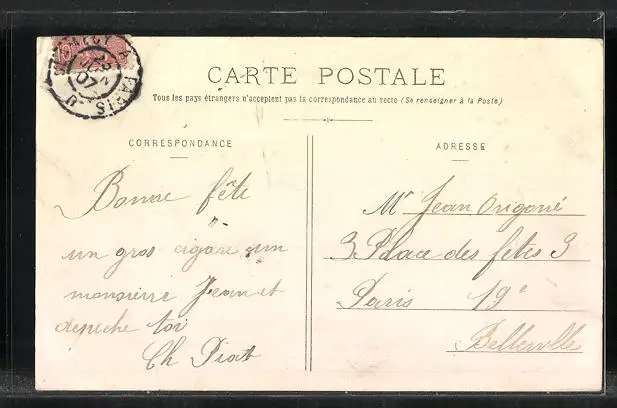 CARTE POSTALE
Tous les pays étrangers n'acceptent pas la correspondance au recto (Se renseigner à la Poste)
CORRESPONDANCE
Bonne fête
un gros cigare
monsieur Jean et
depeche toi
Ch Piat
ADRESSE
Mr Jean Origoné
3 Place des fetes 3
Paris 19e
Belleville
10
A PARIS
07